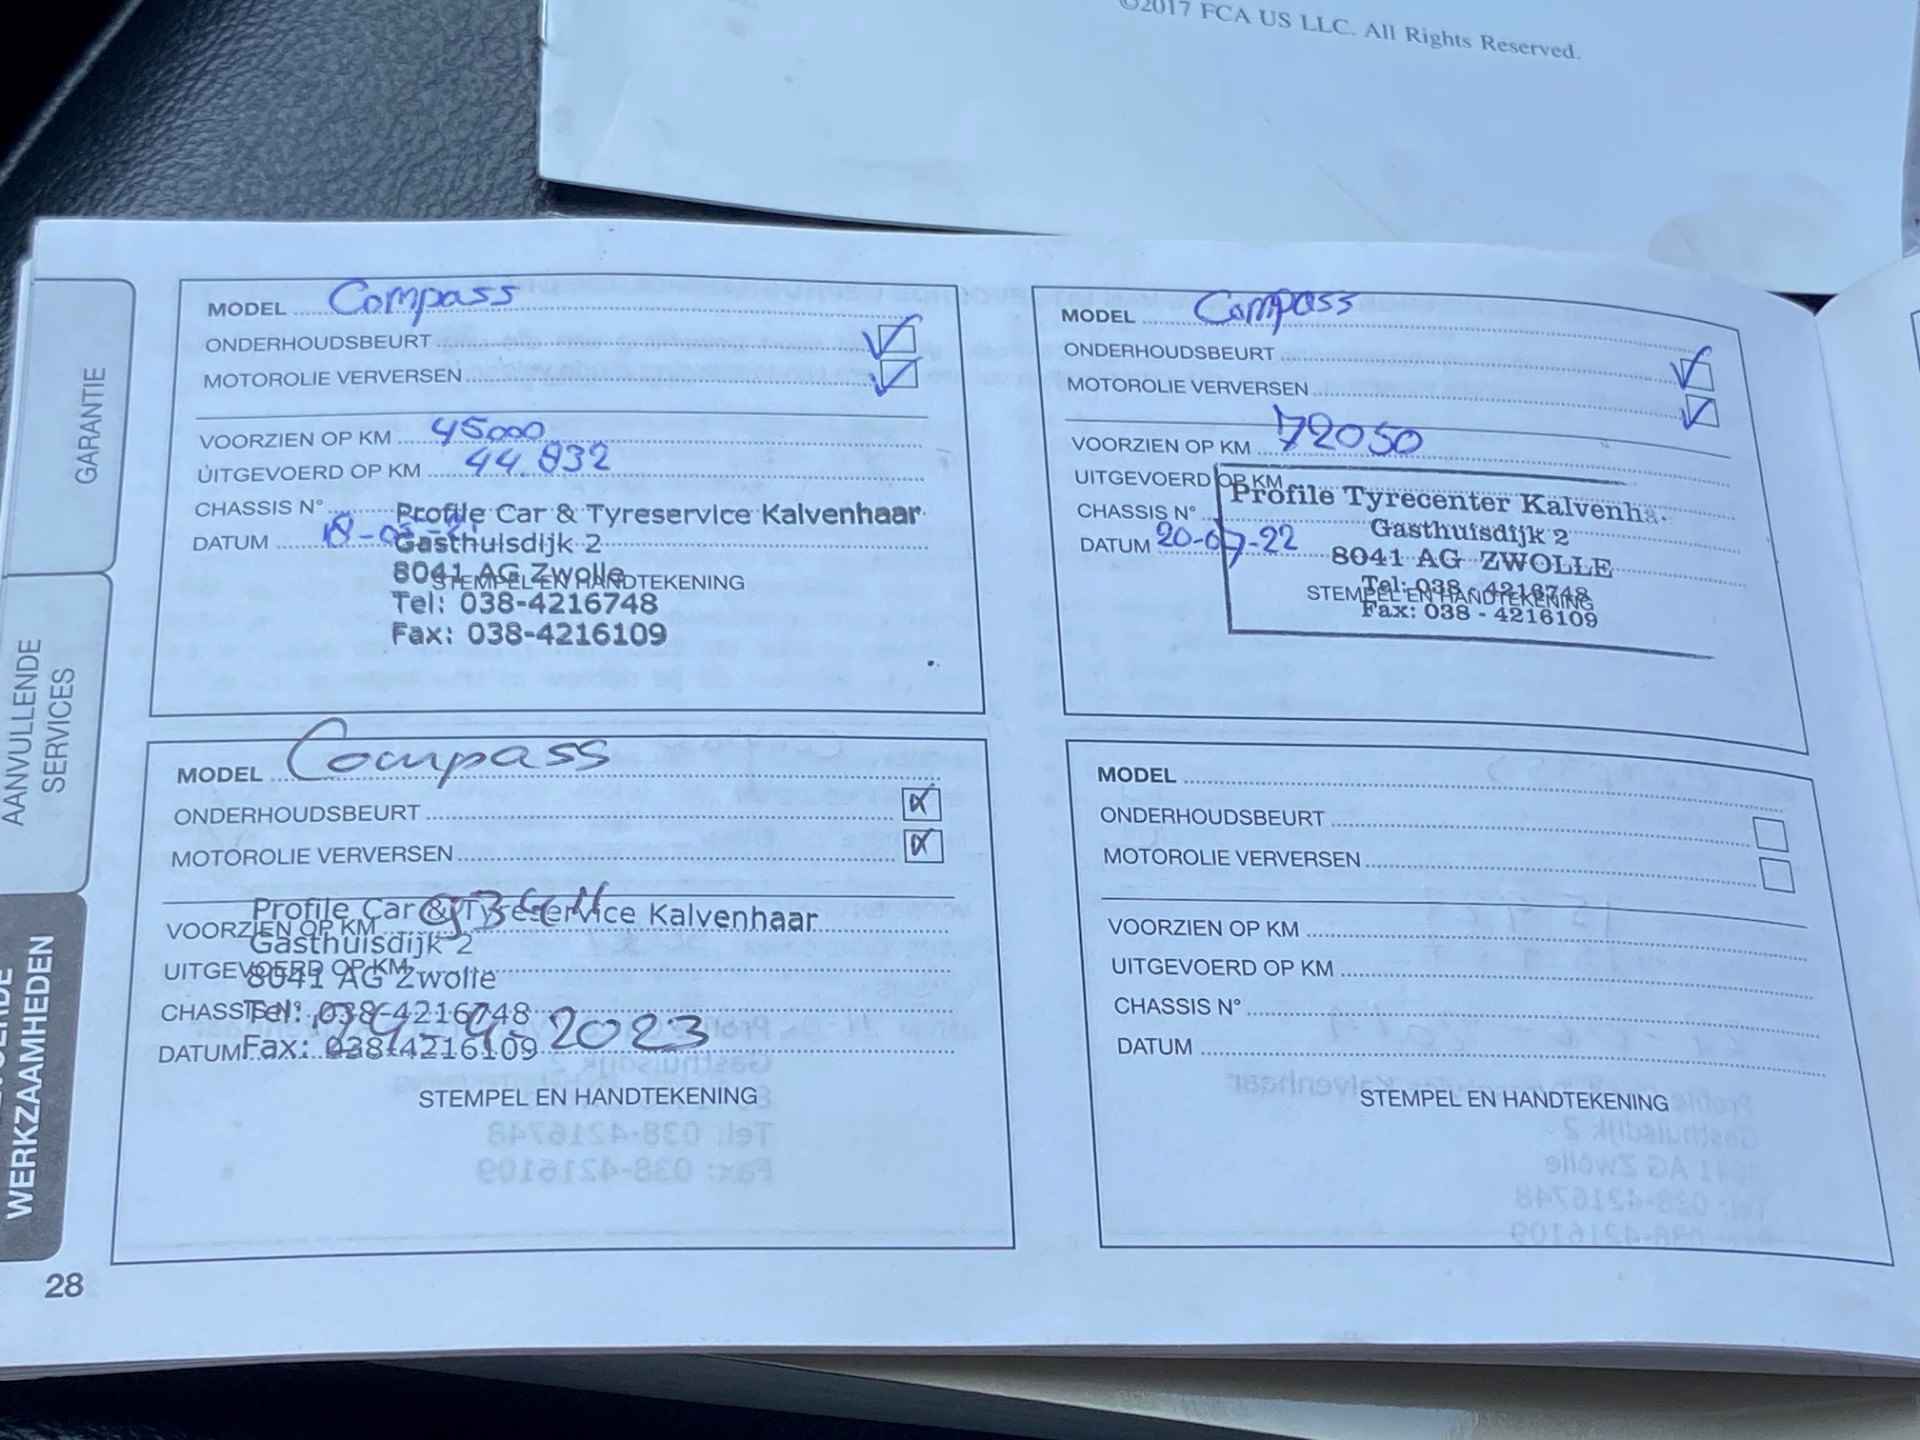 ©2017 FCA US LLC. All Rights Reserved.
GARANTIE
AANVULLENDE
SERVICES
WERKZAAMHEDEN
MODEL Compass
ONDERHOUDSBEURT
MOTOROLIE VERVERSEN
VOORZIEN OP KM 45000
UITGEVOERD OP KM 44.832
CHASSIS N°
DATUM
Profile Car & Tyreservice Kalvenhaar
Gasthuisdijk 2
8041 AG Zwolle
STEMPEL EN HANDTEKENING
Tel: 038-4216748
Fax: 038-4216109
MODEL Compass
ONDERHOUDSBEURT
MOTOROLIE VERVERSEN
VOORZIEN OP KM 72050
UITGEVOERD OP KM
CHASSIS N°
DATUM 20-07-22
Profile Tyrecenter Kalvenha
Gasthuisdijk 2
8041 AG ZWOLLE
STEMPEL EN HANDTEKENING
Tel: 038 - 4216748
Fax: 038 - 4216109
MODEL Compass
ONDERHOUDSBEURT
MOTOROLIE VERVERSEN
VOORZIEN OP KM
UITGEVOERD OP KM
CHASSIS N°
DATUM 2023
Profile Car & Tyreservice Kalvenhaar
Gasthuisdijk 2
8041 AG Zwolle
Tel: 038-4216748
Fax: 038-4216109
STEMPEL EN HANDTEKENING
MODEL
ONDERHOUDSBEURT
MOTOROLIE VERVERSEN
VOORZIEN OP KM
UITGEVOERD OP KM
CHASSIS N°
DATUM
STEMPEL EN HANDTEKENING
28